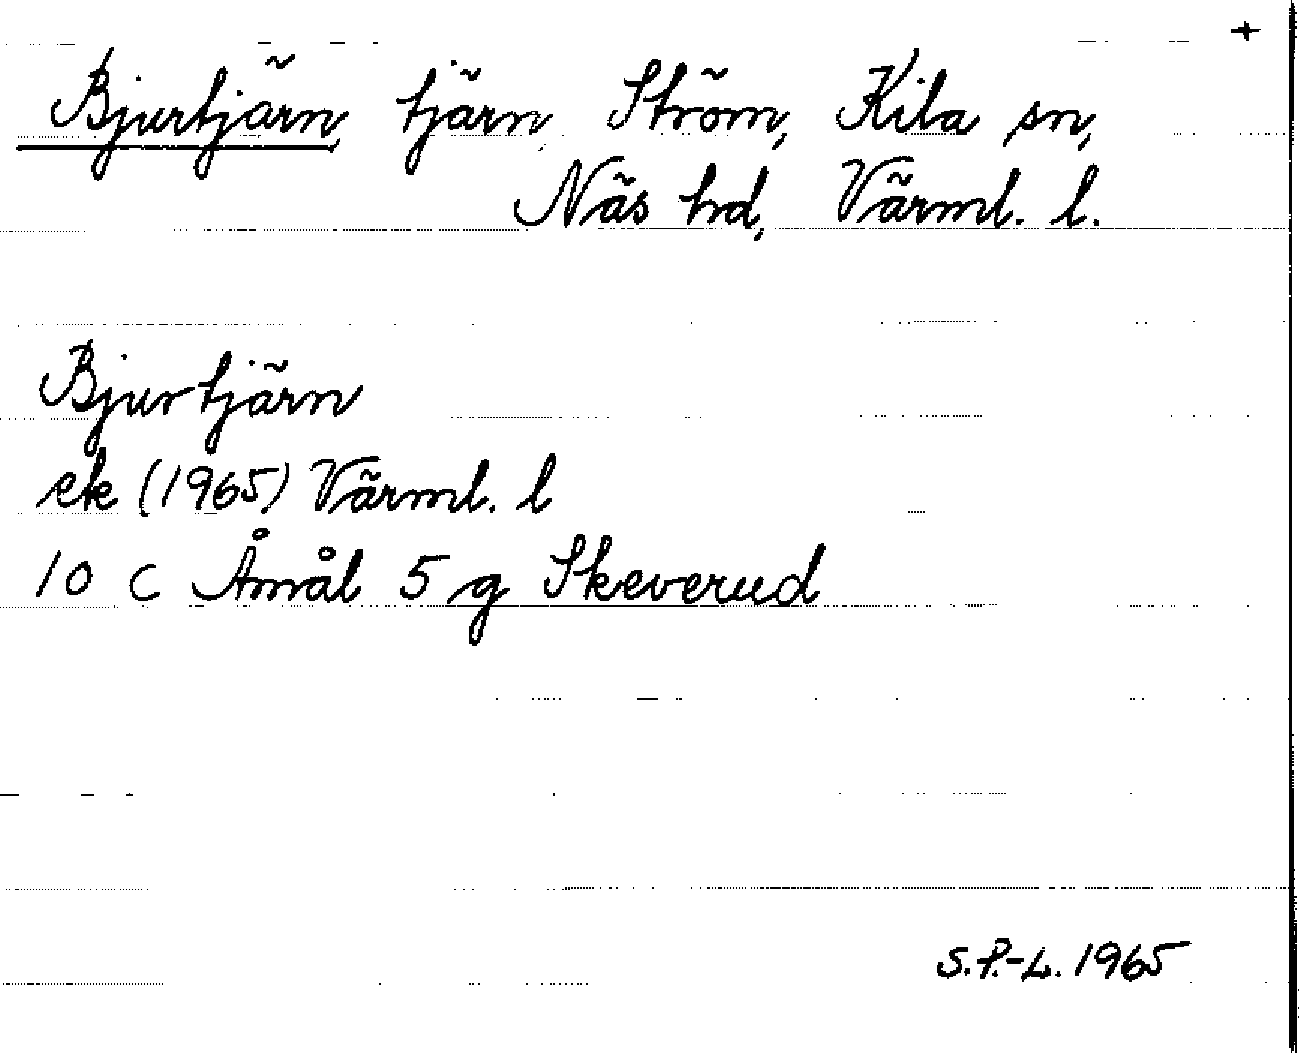 +
Bjurtjärn, tjärn, Ström, Kila sn,
Näs hd, Värml. l.
Bjurtjärn
ek (1965) Värml. l
10 C Åmål 5 g Skeverud
S.P.-L. 1965